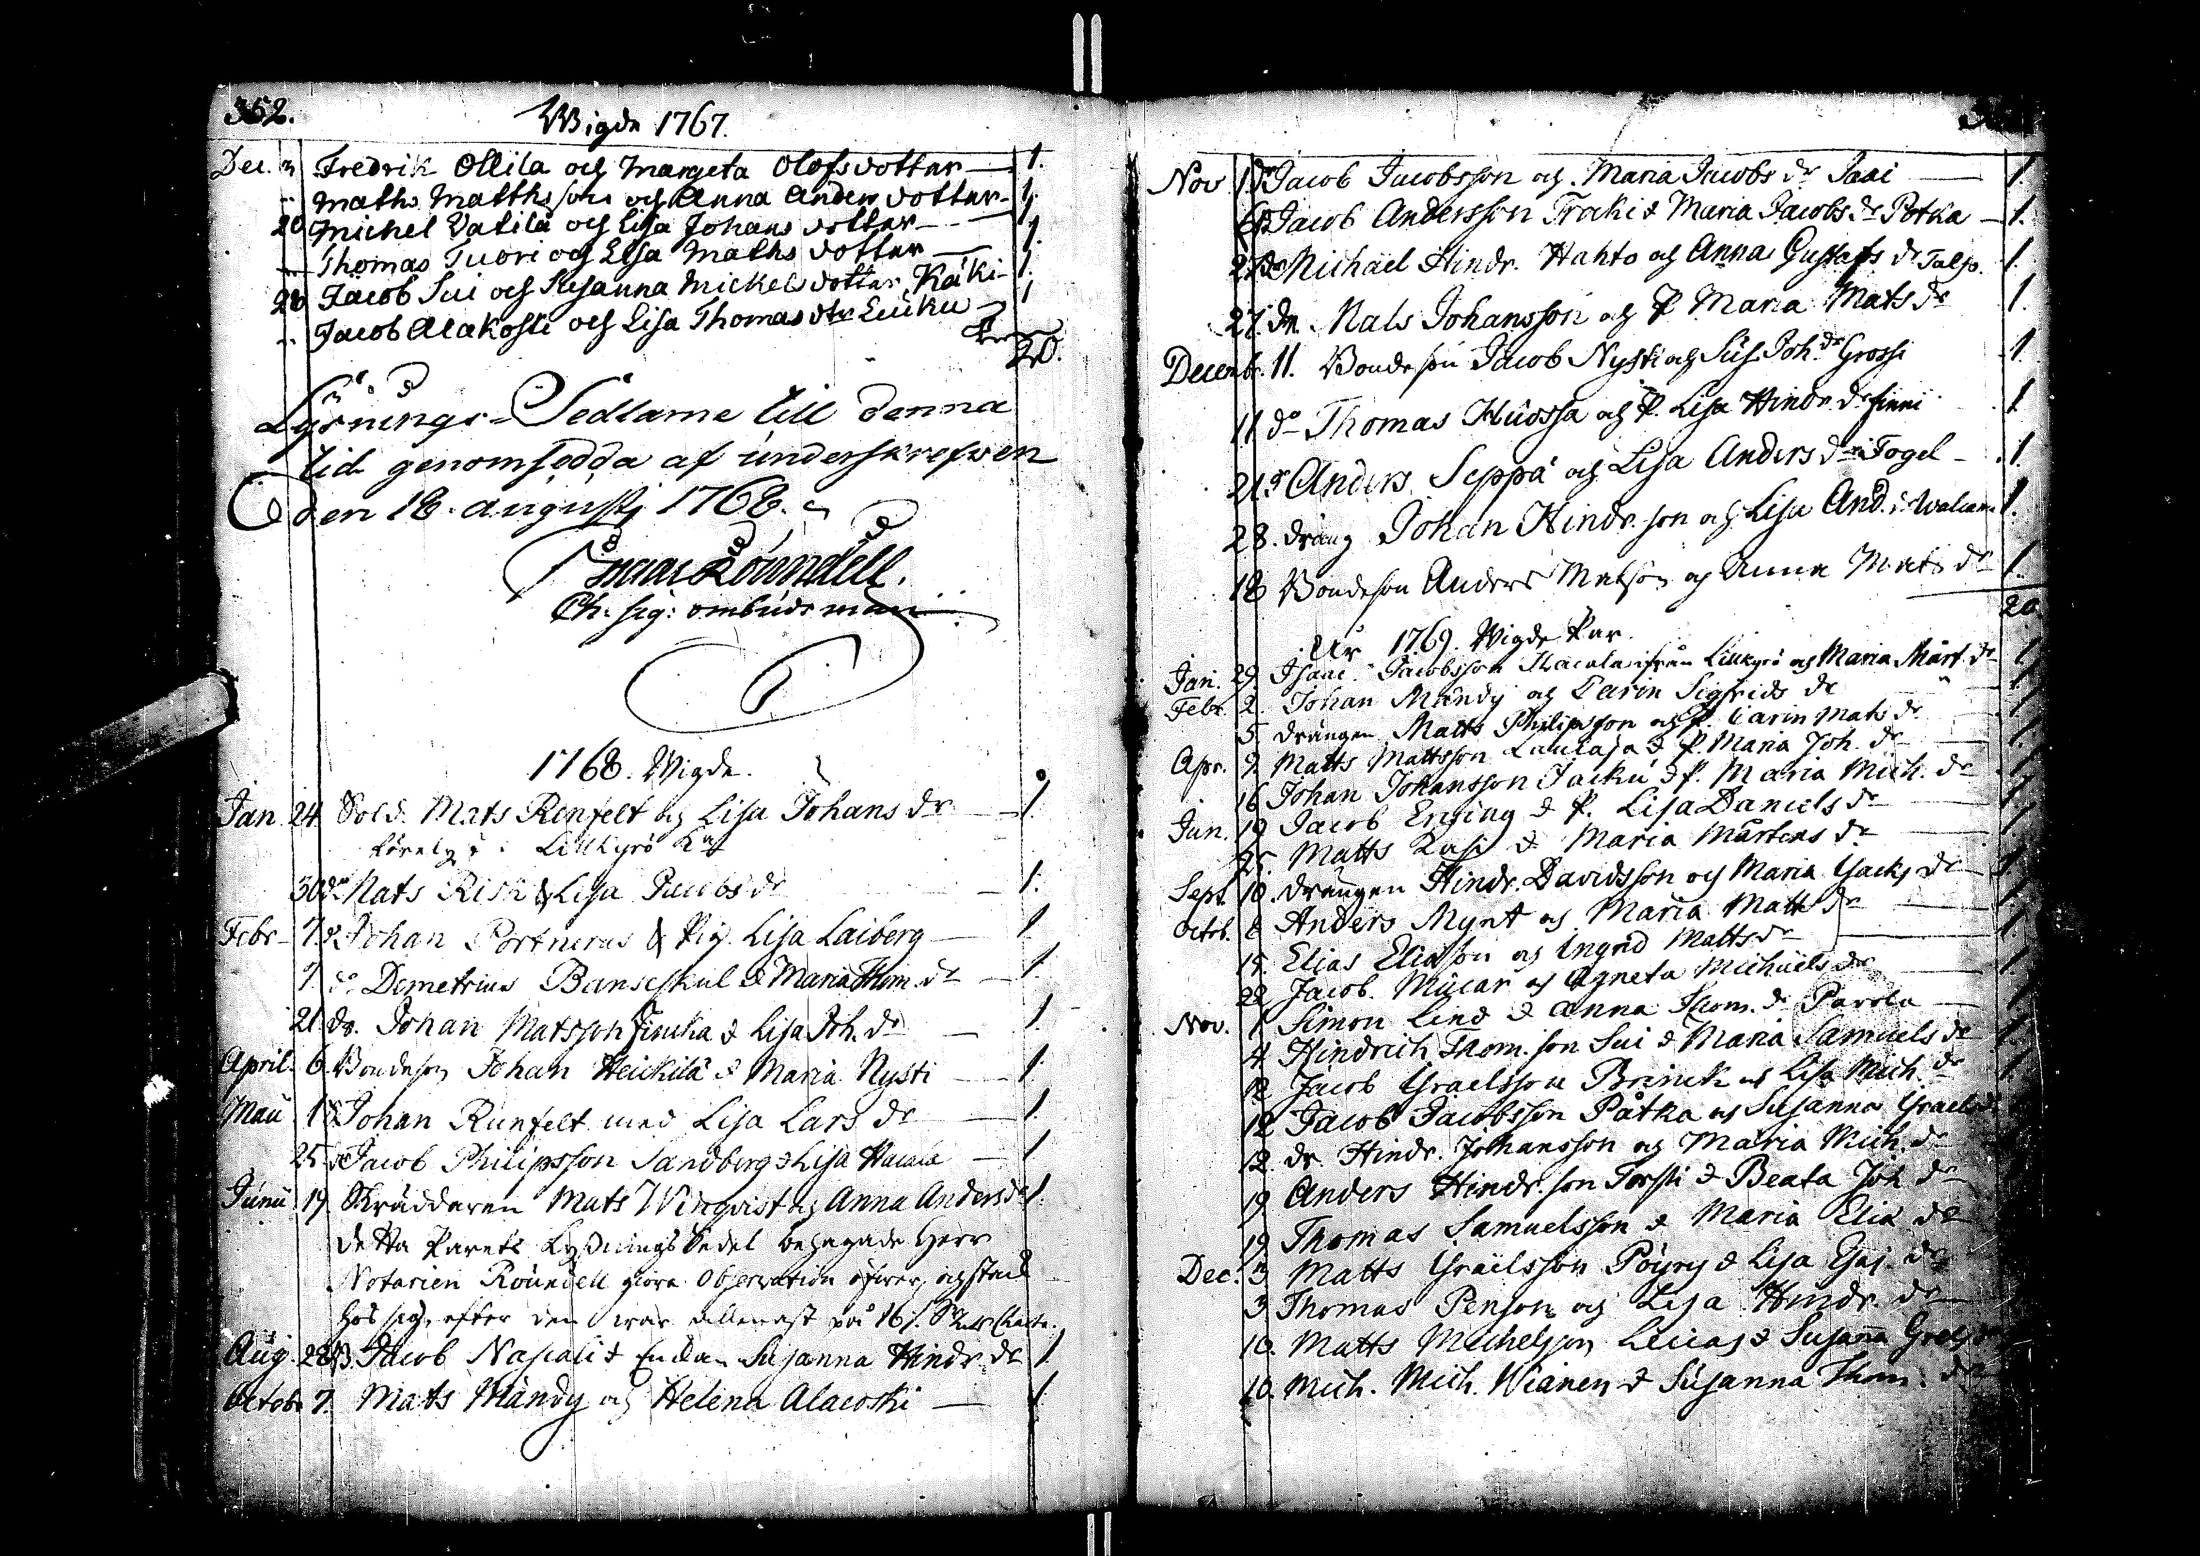 352.
Wigde 1767.
Dec. 3 Fredrik Ollila och Margeta Olofsdotter — 1.
" Maths Mathsson och Anna Andersdotter — 1.
20 Michel Vatila och Lisa Johansdotter — 1.
— Thomas Tuori och Lisa Mathsdotter — 1.
28 Jacob Sui och Susanna Mickelsdotter Käki — 1.
" Jacob Alakoski och Lisa Thomasdtr — 1
20.
Lysnings-Sedlarne till denna
tid genomsedda af underskrefwen
den 18. augusti 1768.
Isaac Roundell.
Ch: sig: ombudsman
1768. Wigde.
Jan. 24. Sold. Mats Renfelt og Lisa Johans dr — 1.
i Lillkyrö
30 dn Mats Risk & Lisa Jacobs dr — 1.
Febr. 7 Johan Portnerus & Pig. Lisa Laiberg — 1
7. do Demetrius & Maria Thom. dr — 1.
21. dr. Johan Matsson & Lisa Joh. dr — 1.
April. 6. Bondeson Johan Heickilä & Maria Nysti — 1.
Maii 1 Johan Runfelt med Lisa Lars dr — 1.
25. Jacob Philipsson Sandberg & Lisa Hacala — 1
Junii 19. Skräddaren Mats Winqvist og Anna Anders dr 1.
detta Parets Lysnings Sedel behagade Herr
Notarien Roundell giöra Observation öfwer, og
hos sig, efter den war allenast på 16
Aug. 28. B. Jacob & Enckan Susanna Hindr. dr 1.
Octobr 7. Mats Mändy og Helena Alacoski — 1.
Nov. 1. Jacob Jacobsson og Maria Jacobs dr — 1.
6. Jacob Andersson & Maria Jacobs dr Potka — 1.
27. Michael Hindr. Hahto og Anna Gustafs dr 1.
27. dr. Mats Johansson og P. Maria Mats dr 1
Decembr. 11. Bondeson Jacob Nysti og Sus. Joh. dr 1.
11 do Thomas Huossa og P. Lisa Hindr. dr Finni 1.
21. Anders Seppä og Lisa Anders dr Fogel — 1.
28. dräng Johan Hindr. son og Lisa And. 1.
18 Bondeson Anders Matsson og Anna Mats dr 1.
20.
År 1769. Wigde Par.
Jan. 29. Isaac Jacobsson ifrån Lillkyrö og Maria Mårt. dr 1
Febr. 2. Johan Mändy og Carin Sigfrids dr 1.
5 drängen Matts Philipsson og P. Carin Mats dr 1.
Apr. 9. Matts Mattsson & P. Maria Joh. dr 1.
16 Johan Johansson & P. Maria Mich. dr 1.
Jun. 19 Jacob & P. Lisa Daniels dr 1.
25. Matts & Maria Mårtens dr 1
Sept. 10. drängen Hindr. Davidsson og Maria dr 1.
Octob. 8 Anders Mynt og Maria Matts dr 1
15. Elias Eliasson og Ingrid Matts dr 1
22 Jacob og Agneta Michaels dr 1
Nov. 1 Simon Lind & Anna Thom. dr 1
4 Hindrich Thom. son Sui & Maria Samuels dr 1.
12 Jacob Israelsson og Lisa Mich. dr 1.
12 Jacob Jacobsson Påtka og Susanna Israels dr
12. dr. Hindr. Johansson og Maria Mich. dr
19 Anders Hindr. son Torsti & Beata Joh. dr
19. Thomas Samuelsson & Maria Elia dr
Dec. 3 Matts Israelsson Pöyry & Lisa dr
3 Thomas Penson og Lisa Hindr. dr
10. Matts Michelson & Susanna
10. Mich. Mich. & Susanna Thom. dr